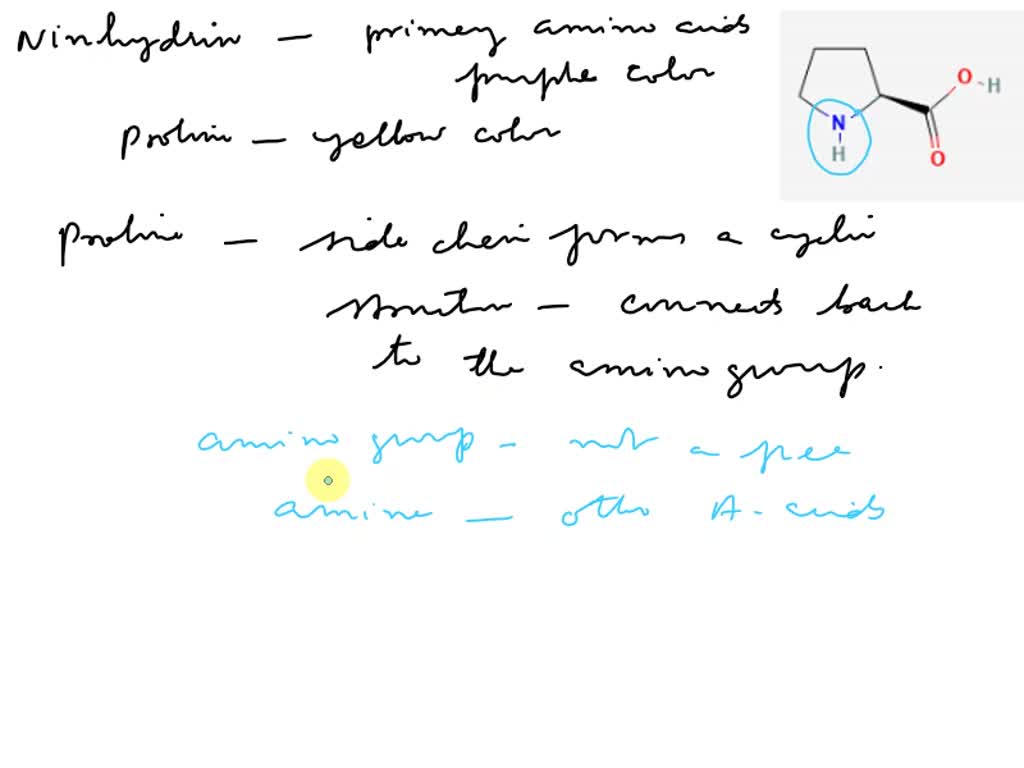 Ninhydrin - primary amino acids
purple color
Proline - yellow color
N
H
O
H
O
Proline - side chain forms a cyclic
structure - connects back
to the amino group.
amino group - not a free
amine - other A-acids